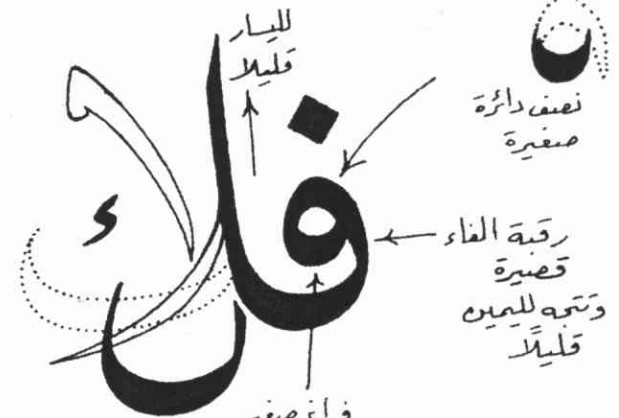 لليسار
قليلا
نصف دائرة
صغيرة
رقبة الفاء
قصيرة
وتتجه لليمين
قليلًا
فراغ صغير